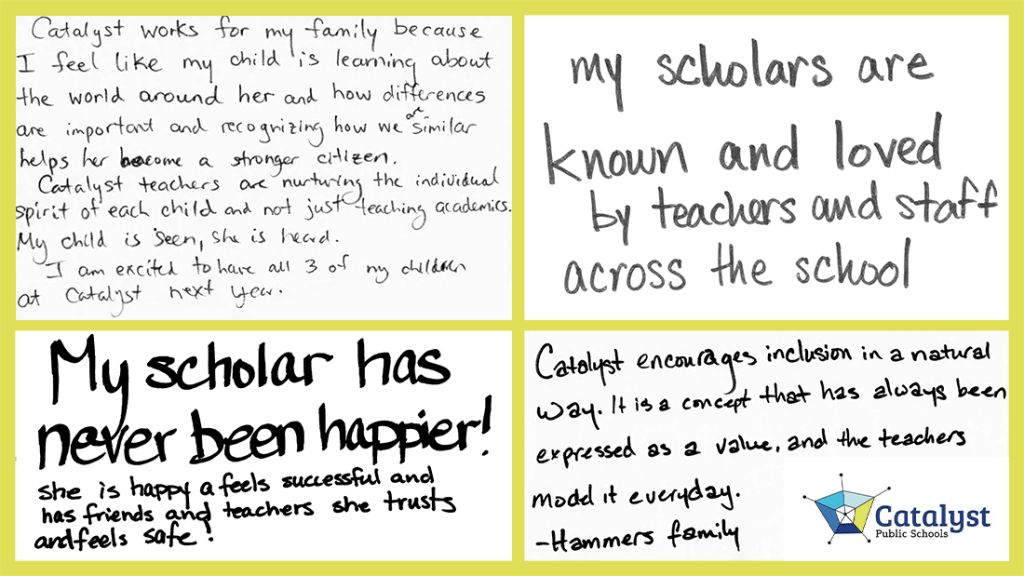 Catalyst works for my family because
I feel like my child is learning about
the world around her and how differences
are important and recognizing how we are similar
helps her become a stronger citizen.
Catalyst teachers are nurturing the individual
spirit of each child and not just teaching academics.
My child is seen, she is heard.
I am excited to have all 3 of my children
at Catalyst next year.
my scholars are
known and loved
by teachers and staff
across the school
My scholar has
never been happier!
She is happy a feels successful and
has friends and teachers she trusts
and feels safe!
Catalyst encourages inclusion in a natural
way. It is a concept that has always been
expressed as a value, and the teachers
model it everyday.
-Hammers family
Catalyst
Public Schools